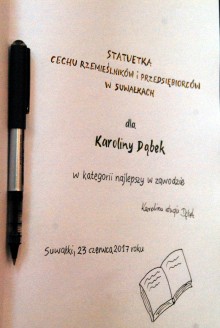 STATUETKA
CECHU RZEMIEŚLNIKÓW I PRZEDSIĘBIORCÓW
W SUWAŁKACH
dla
Karoliny Dąbek
w kategorii najlepszy w zawodzie
Karolina
Suwałki, 23 czerwca 2017 roku